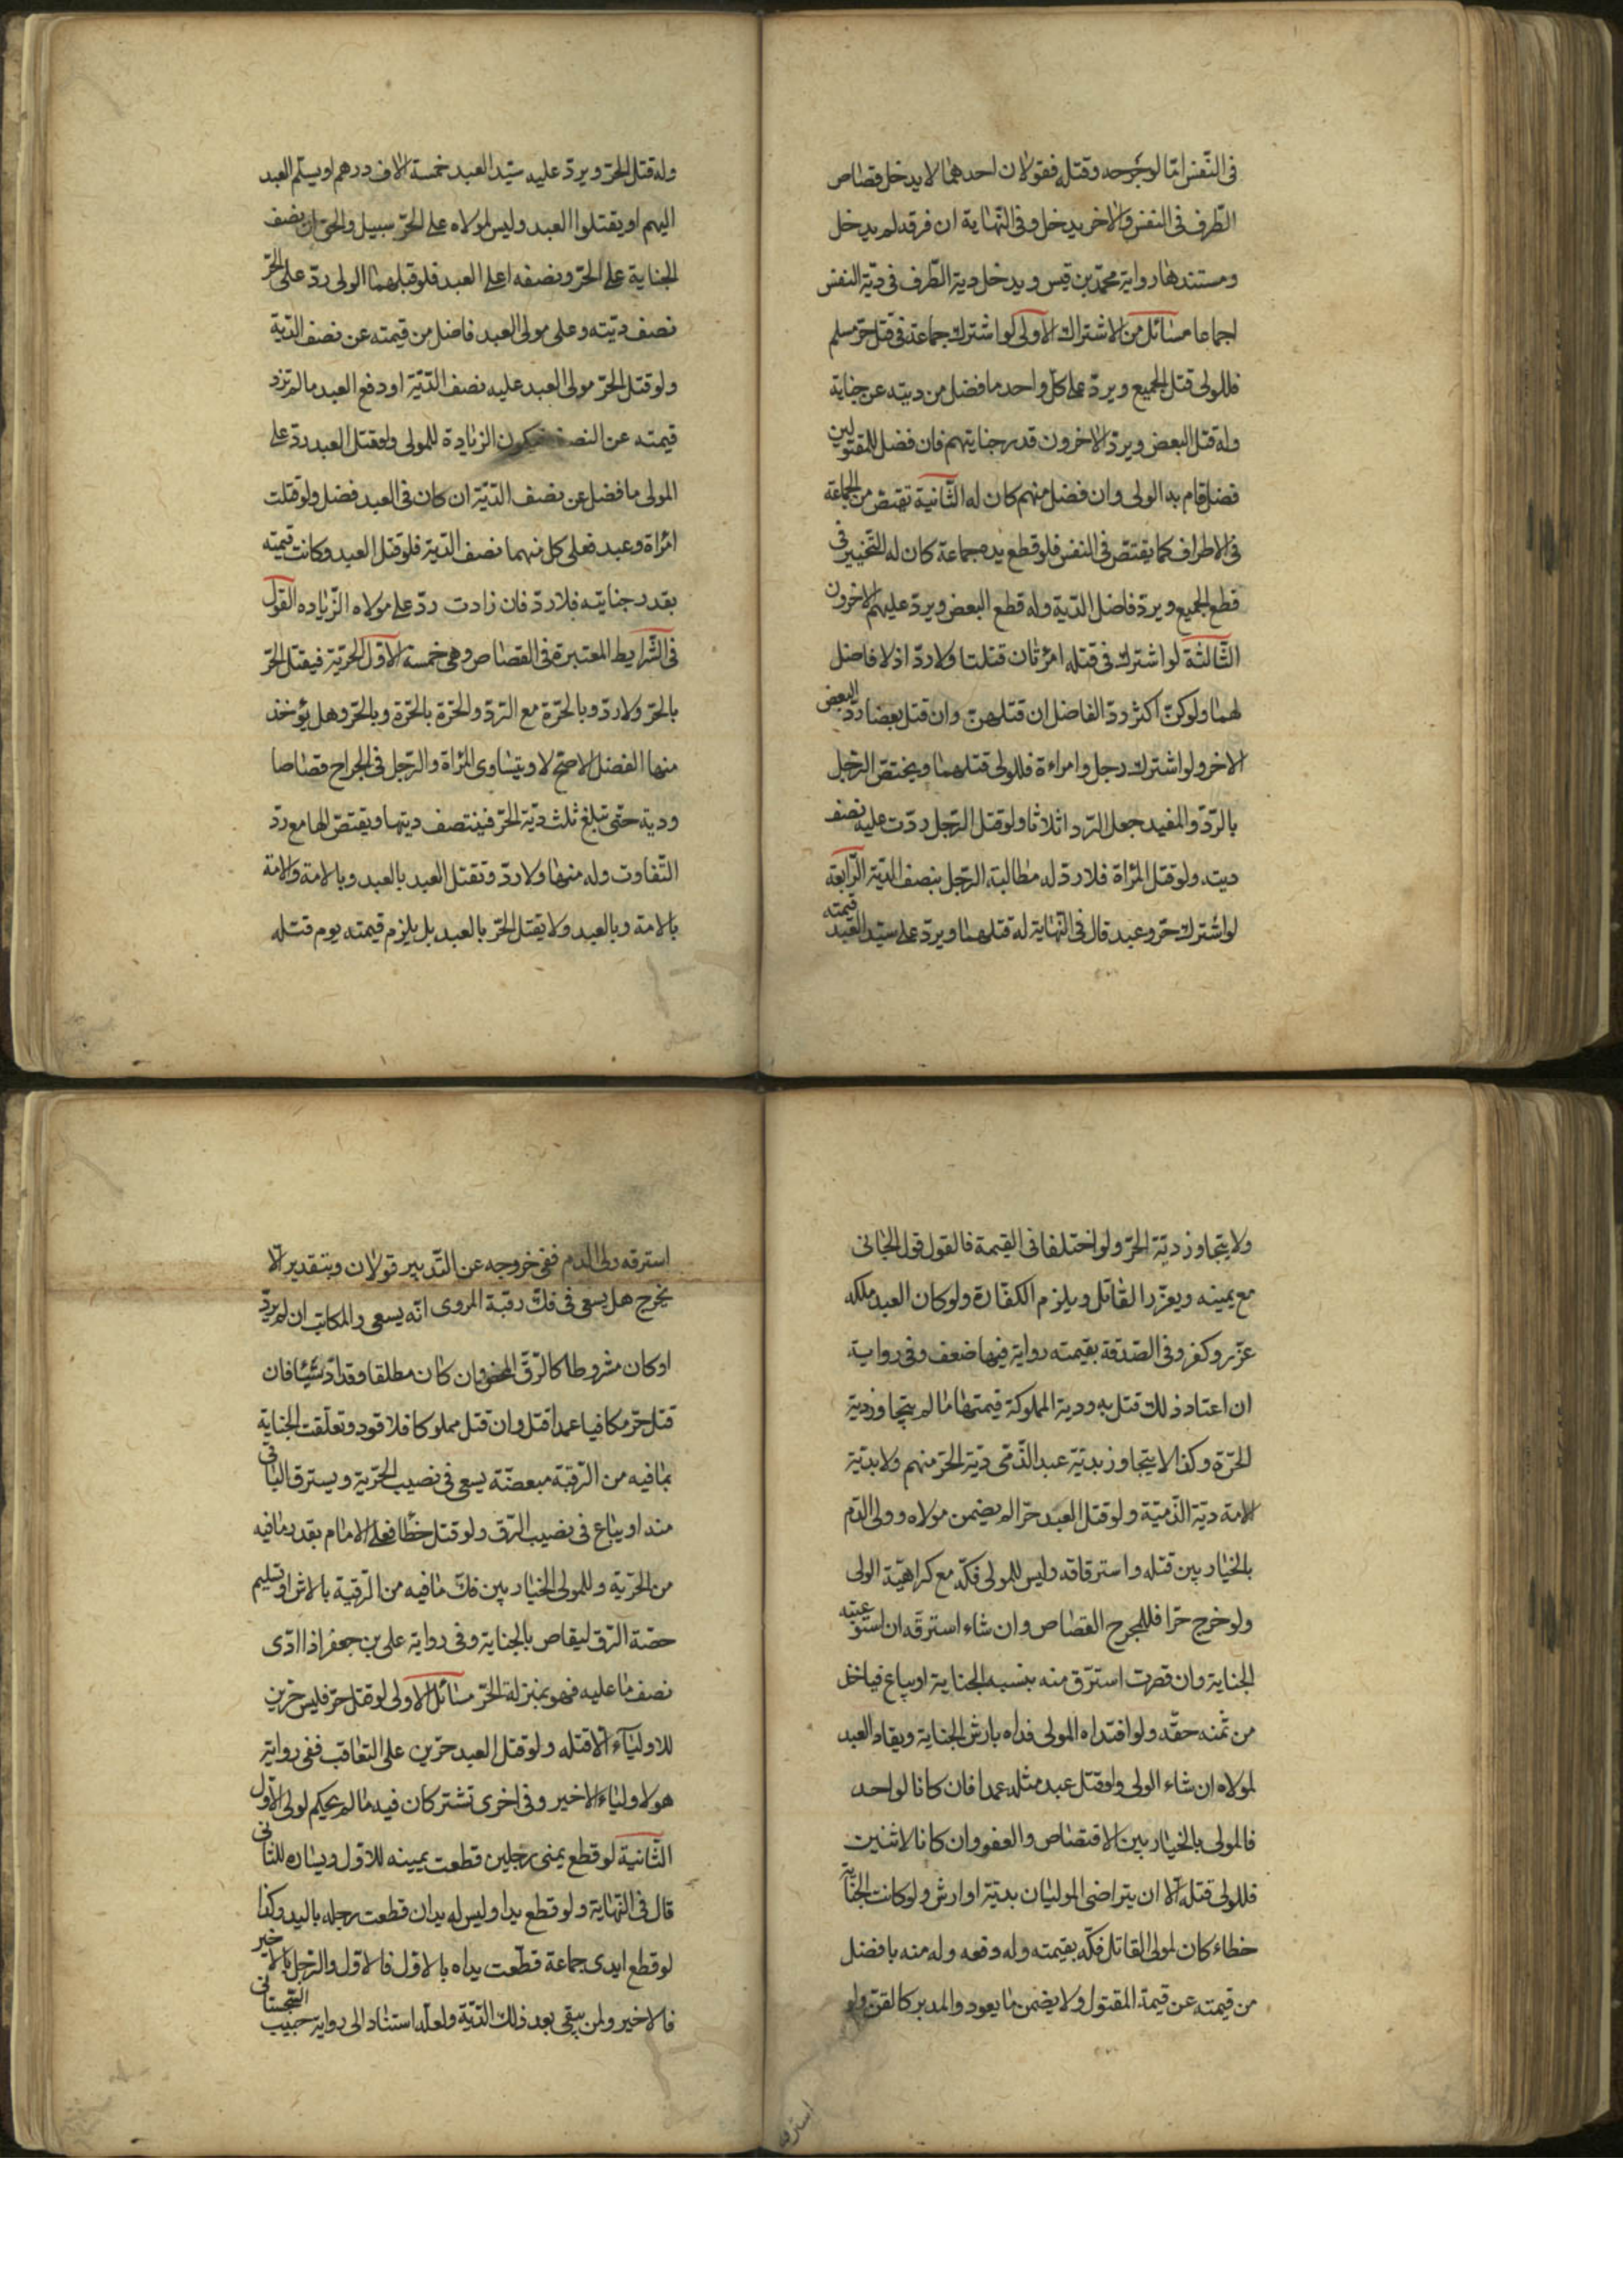 فى النّفس امّا لو جرحه وقتله فقولان احدهما لا يدخل قصاص
الطّرف فى النفس والاخر يدخل وفى النّهاية ان فرقه لم يدخل
ومستندها رواية محمّد بن قيس ويدخل دية الطّرف فى ديّة النفس
اجماعا مسائل من الاشتراك الاولى لو اشترك جماعة فى قتل حرّ مسلم
فللولى قتل الجميع ويردّ على كلّ واحد ما فضل من ديته عن جناية
وله قتل البعض ويردّ الاخرون قدر جنايتهم فان فضل للمقتولين
فضل قام به الولى وان فضل منهم كان له الثّانية تقتصّ من الجماعة
فى الاطراف كما يقتصّ فى النفس فلو قطع يده جماعة كان له التّخيير فى
قطع الجميع ويردّ فاضل الدّية وله قطع البعض ويردّ عليهم الاخرون
الثّالثة لو اشترك فى قتله امرئتان قتلتا ولا ردّ اذ لا فاضل
لهما ولو كنّ اكثر ردّ الفاضل ان قتلهنّ وان قتل بعضا ردّ البعض
الاخر ولو اشترك رجل وامراءة فللولى قتلهما ويختصّ الرّجل
بالرّدّ والمفيد جعل الرّد اثلاثا ولو قتل الرّجل ردّت عليه نصف
ديته ولو قتل المرأة فلا ردّ له مطالبة الرّجل بنصف الديّة الرّابعة
لو اشترك حرّ وعبد قال فى النّهاية له قتلهما ويردّ على سيّد العبد قيمته
وله قتل الحرّ ويردّ عليه سيّد العبد خمسة الاف درهم او يسلّم العبد
اليهم او يقتلوا العبد وليس لمولاه على الحرّ سبيل والحق ان نصف
الجناية على الحرّ ونصفها على العبد فلو قتلهما الولى ردّ على الحرّ
نصف ديّته وعلى مولى العبد فاضل من قيمته عن نصف الدّية
ولو قتل الحرّ مولى العبد عليه نصف الدّيّة او دفع العبد ما لم تزد
قيمته عن النصف فيكون الزيادة للمولى ولو قتل العبد ردّ على
المولى ما فضل عن نصف الديّة ان كان فى العبد فضل ولو قتلت
امرأة وعبد فعلى كل منهما نصف الدّية فلو قتل العبد وكانت قيمته
بقدر جنايته فلا ردّ فان زادت ردّ على مولاه الزّياده القول
فى الشّرايط المعتبرة فى القصاص وهى خمسة الاوّل الحريّة فيقتل الحرّ
بالحرّ ولا ردّ وبالحرّة مع الرّدّ والحرّة بالحرّة وبالحرّ وهل يؤخذ
منها الفضل الاصحّ لا ويتساوى المرأة والرّجل فى الجراح قصاصا
ودية حتّى تبلغ ثلث ديّة الحرّ فينتصف ديتها ويقتصّ لها مع ردّ
التّفاوت وله منها ولا ردّ وتقتل العبد بالعبد وبالامة والامة
بالامة وبالعبد ولا يقتل الحرّ بالعبد بل يلزم قيمته يوم قتله
ولا يتجاوز ديّة الحرّ ولو اختلفا فى القيمة فالقول قول الجانى
مع يمينه ويعزّر القاتل ويلزم الكفّارة ولو كان العبد ملكه
عزّر وكفر وفى الصّدقة بقيمته رواية فيها ضعف وفى رواية
ان اعتاد ذلك قتل به ودية المملوكة قيمتها ما لم يتجاوز دية
الحرّة وكذا لا يتجاوز بديّة عبد الذّمّى ديّة الحرّ منهم ولا بديّة
الامة ديّة الذّميّة ولو قتل العبد حرّا لم يضمن مولاه وولى الدّم
بالخيار بين قتله واسترقاقه وليس للمولى فكّه مع كراهيّة الولى
ولو خرج حرّا فللمجرح القصاص وان شاء استرقّه ان استوعبته
الجناية وان قصرت استرّق منه بنسبه الجناية او يباع فياخذ
من ثمنه حقّه ولو افتداه المولى فداه بارش الجناية ويقاد العبد
لمولاه ان شاء الولى ولو قتل عبد مثله عمدا فان كانا لواحد
فالمولى بالخيار بين الاقتصاص والعفو وان كانا لاثنين
فللولى قتله الّا ان يتراضى الموليان بديّة او ارش ولو كانت الجناية
خطاء كان لمولى القاتل فكّه بقيمته وله دفعه وله منه ما فضل
من قيمته عن قيمة المقتول ولا يضمن ما يعود والمدبر كالقنّ ولو
استرق
استرقه ولى الدم ففى خروجه عن التّدبير قولان وبتقدير الّا
يخرج هل يسعى فى فكّ رقبة المروى انّه يسعى والمكاتب ان لم يردّ
او كان مشروطا كالرّقّ المحض وان كان مطلقا وقد ادّى شيئا فان
قتل حرّ مكافيا عمدا قتل وان قتل مملوكا فلا قود وتعلّقت الجناية
بما فيه من الرّقبة مبعضّة يسعى فى نصيب الحرّية ويسترق الباقى
منه او يباع فى نصيب الرّق ولو قتل خطأ فعلى الامام بقدر ما فيه
من الحرّية وللمولى الخيار بين فكّ ما فيه من الرّقية بالارش او تسليم
حصّة الرّق ليقاص بالجناية وفى رواية على بن جعفر اذا ادّى
نصف ما عليه فهو بمنزلة الحرّ مسائل الاولى لو قتل حرّ فليس حرّين
للاولياء الّا قتله ولو قتل العبد حرّين على التعاقب ففى رواية
هو لاولياء الاخير وفى اخرى تشتركان فيه ما لم يحكم لولى الاوّل
الثّانية لو قطع يمنى رجلين قطعت يمينه للاوّل ويساره للثّانى
قال فى النّهاية ولو قطع يدا وليس له يدان قطعت رجله باليد وكذا
لو قطع ايدى جماعة قطّعت يداه بالاوّل فالاوّل والرّجل بالاخير
فالاخير ولمن يبقى بعد ذلك الدّيّة ولعلّه استنادا الى رواية حبيب السّجستانى